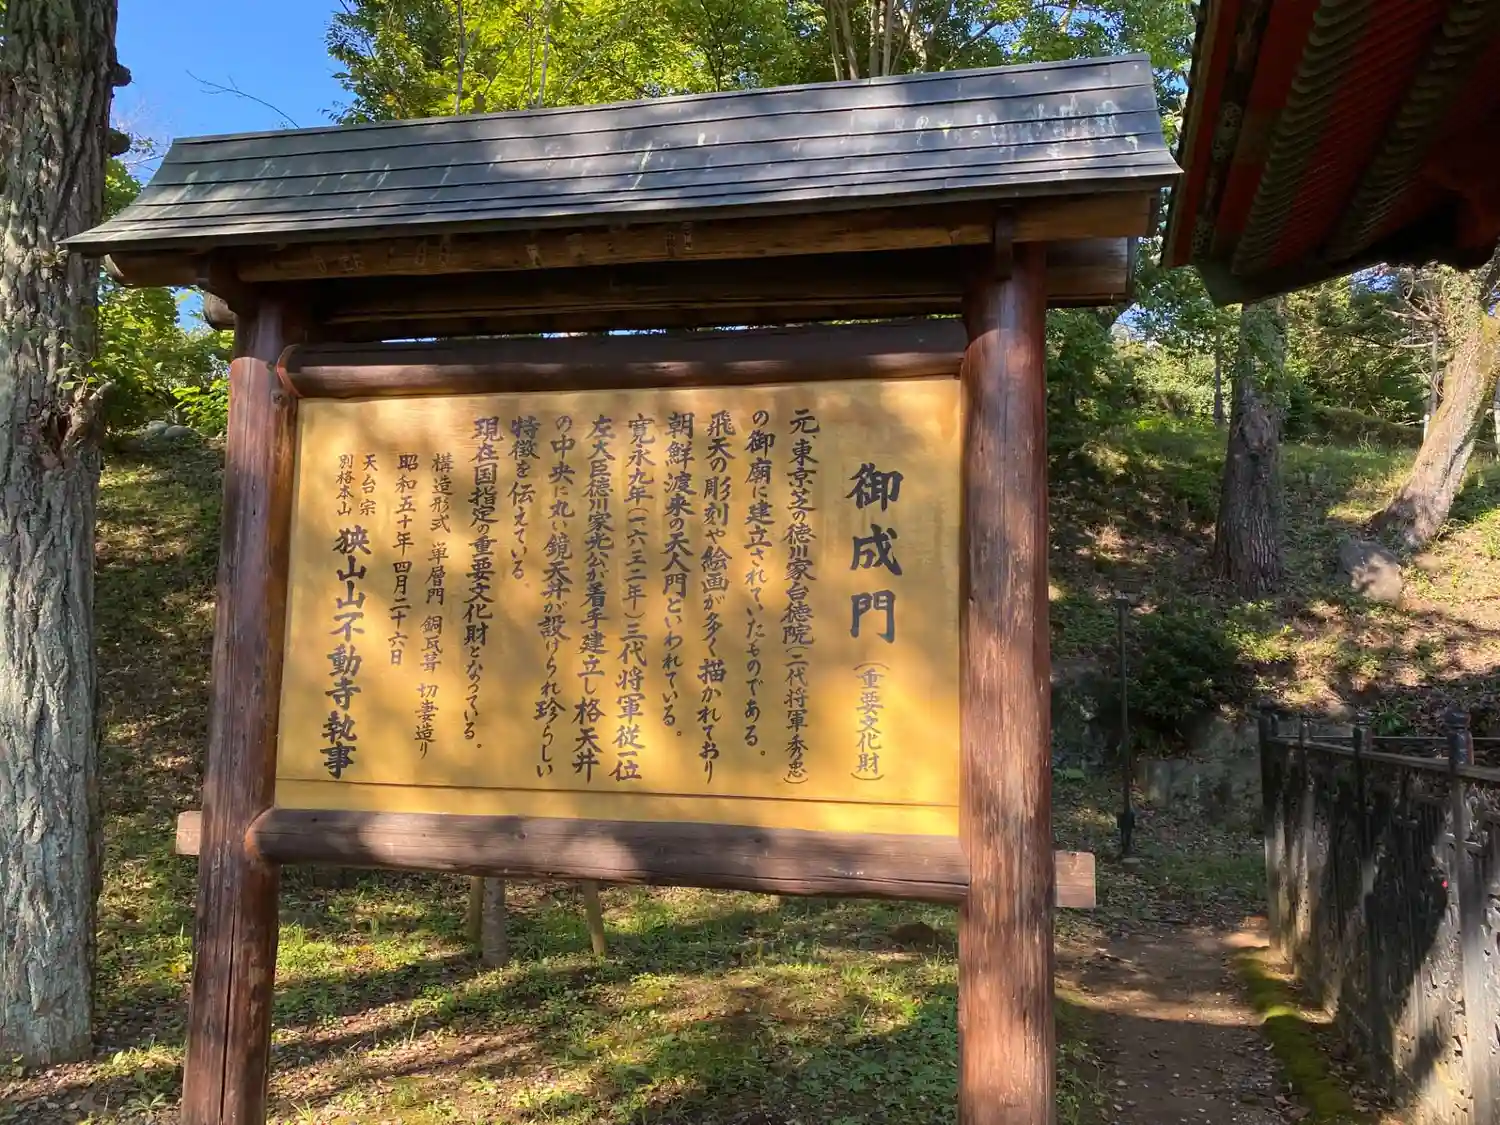 御成門(重要文化財)
元、東京芝の徳川家台徳院(二代将軍秀忠)
の御廟に建立されていたものである。
飛天の彫刻や絵画が多く描かれており
朝鮮渡来の天人門といわれている。
寛永九年(一六三二年)三代将軍従一位
左大臣徳川家光公が着手建立し格天井
の中央に丸い鏡天井が設けられ珍らしい
特徴を伝えている。
現在国指定の重要文化財となっている。
構造形式 単層門 銅瓦葺 切妻造り
昭和五十年四月二十六日
天台宗
別格本山
狭山山不動寺執事